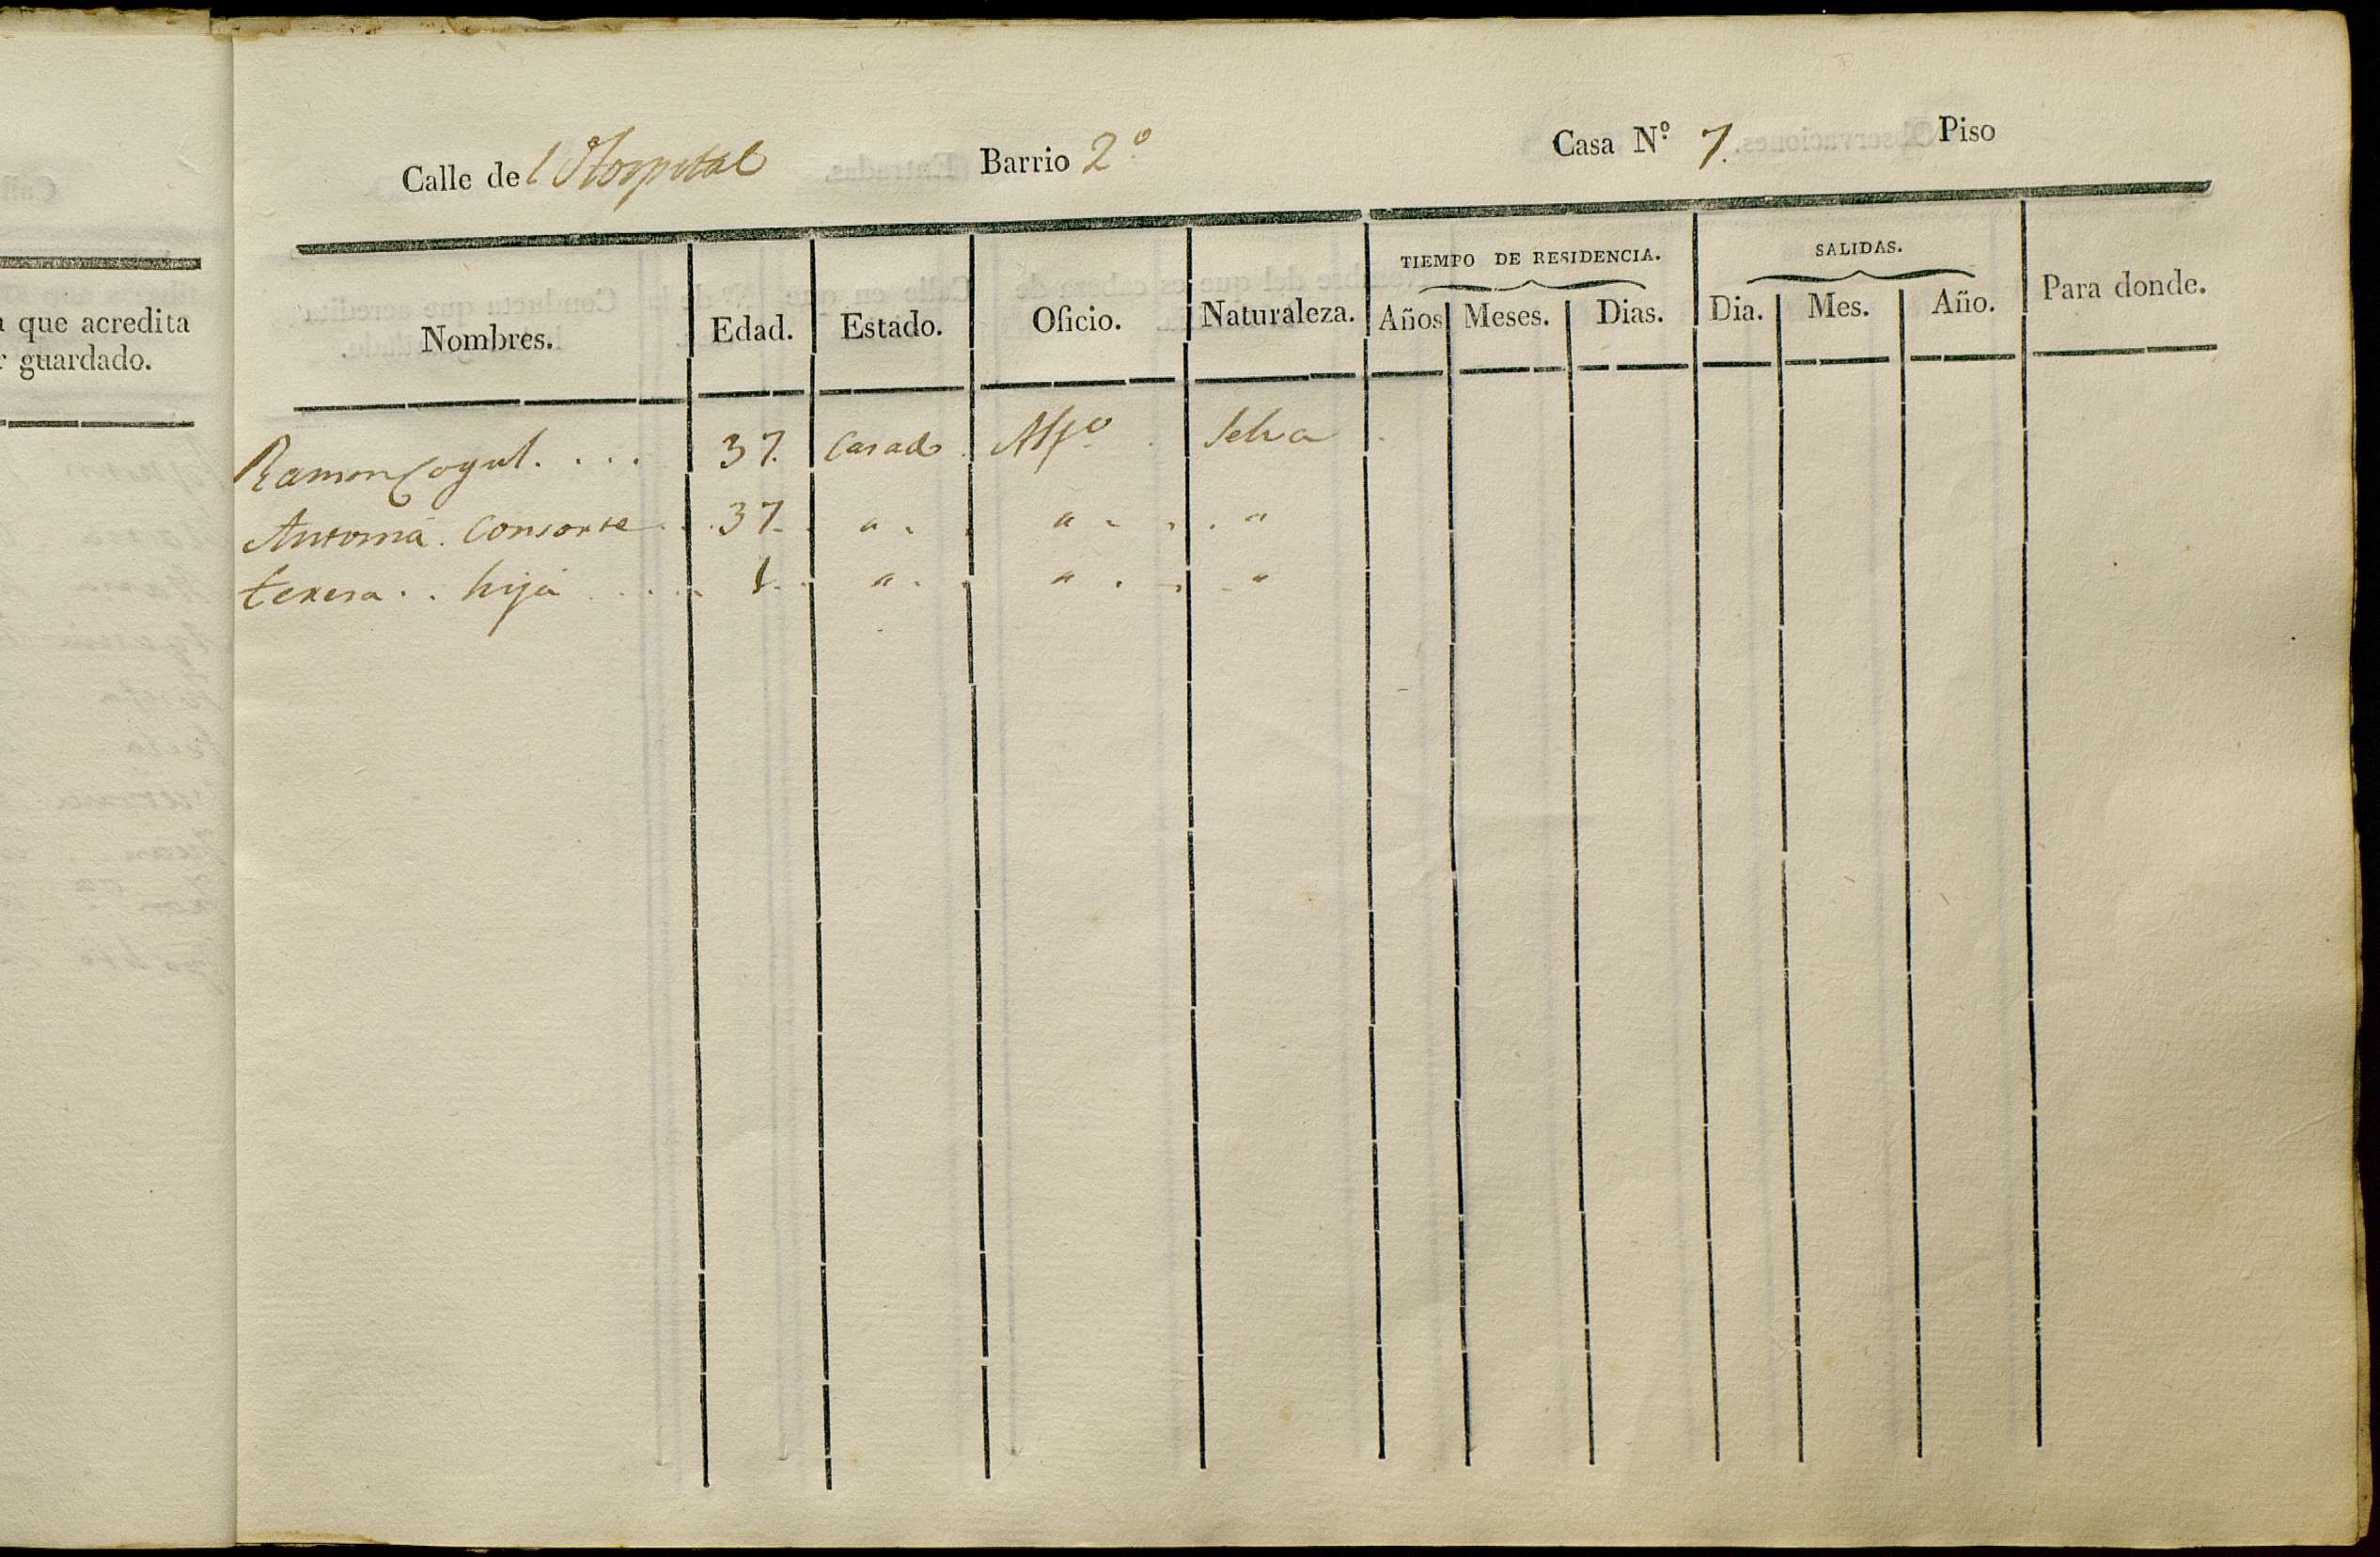 a que acredita
r guardado.
Calle del Hospital Barrio 2º Casa Nº 7. Piso
TIEMPO DE RESIDENCIA. SALIDAS.
Nombres. Edad. Estado. Oficio. Naturaleza. Años Meses. Dias. Dia. Mes. Año. Para donde.
Ramon Cogul. . . . 37. Casado. Selva
Antonia. Consorte . . 37. " . " . . . "
texera . . hija . . . . 1. . " . . " . . . "